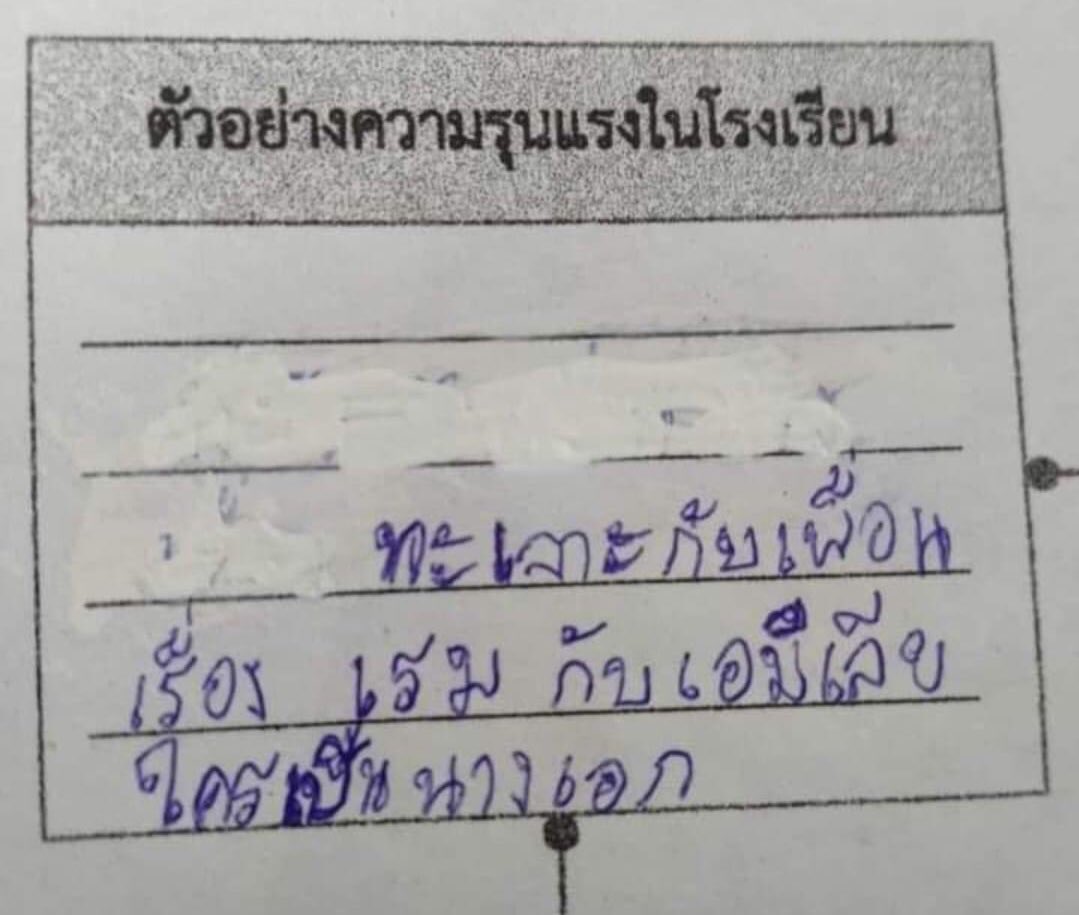 ตัวอย่างความรุนแรงในโรงเรียน
ทะเลาะกับเพื่อน
เรื่อง เรม กับ เอมิเลีย
ใครเป็น นางเอก